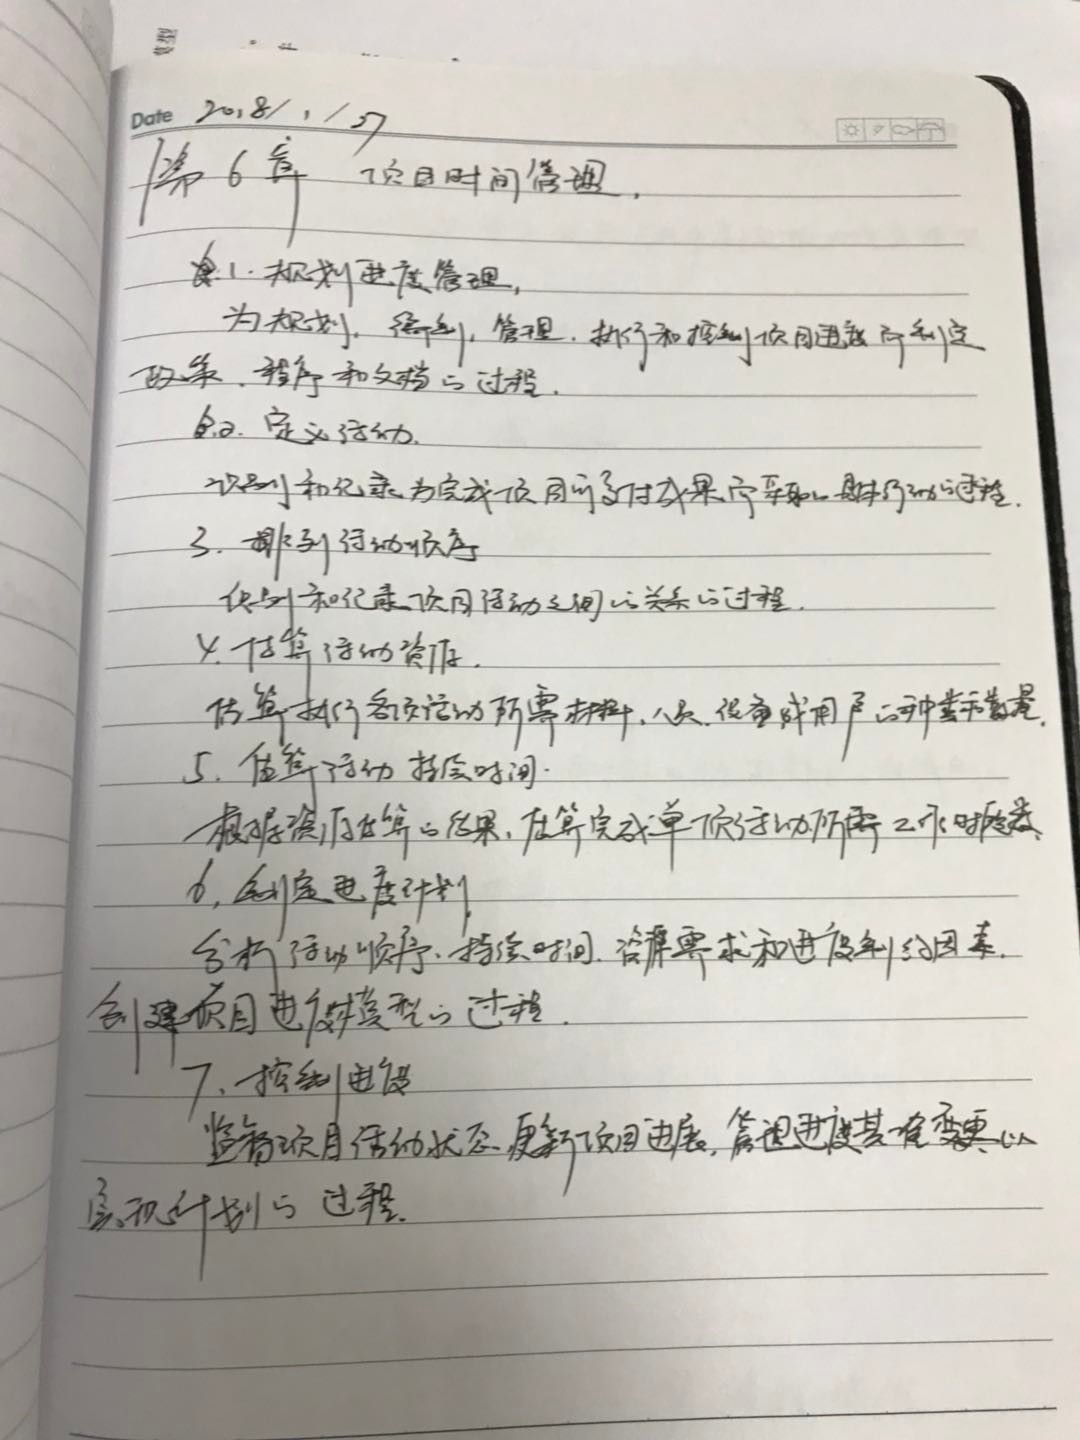 Date 2018/1/27
第6章 项目时间管理.
1. 规划进度管理,
为规划, 编制, 管理. 执行和控制项目进度而制定
政策、程序和文档的过程.
2. 定义活动.
识别和记录为完成项目可交付成果而采取的具体行动的过程.
3. 排列活动顺序
识别和记录项目活动之间的关系的过程.
4. 估算活动资源.
估算执行各项活动所需材料、人员、设备或用户的种类和数量.
5. 估算活动持续时间.
根据资源估算的结果, 估算完成单项活动所需工作时段数.
6. 制定进度计划
分析活动顺序、持续时间、资源需求和进度制约因素,
创建项目进度模型的过程.
7. 控制进度
监督项目活动状态、更新项目进展, 管理进度基准变更、以
实现计划的过程.